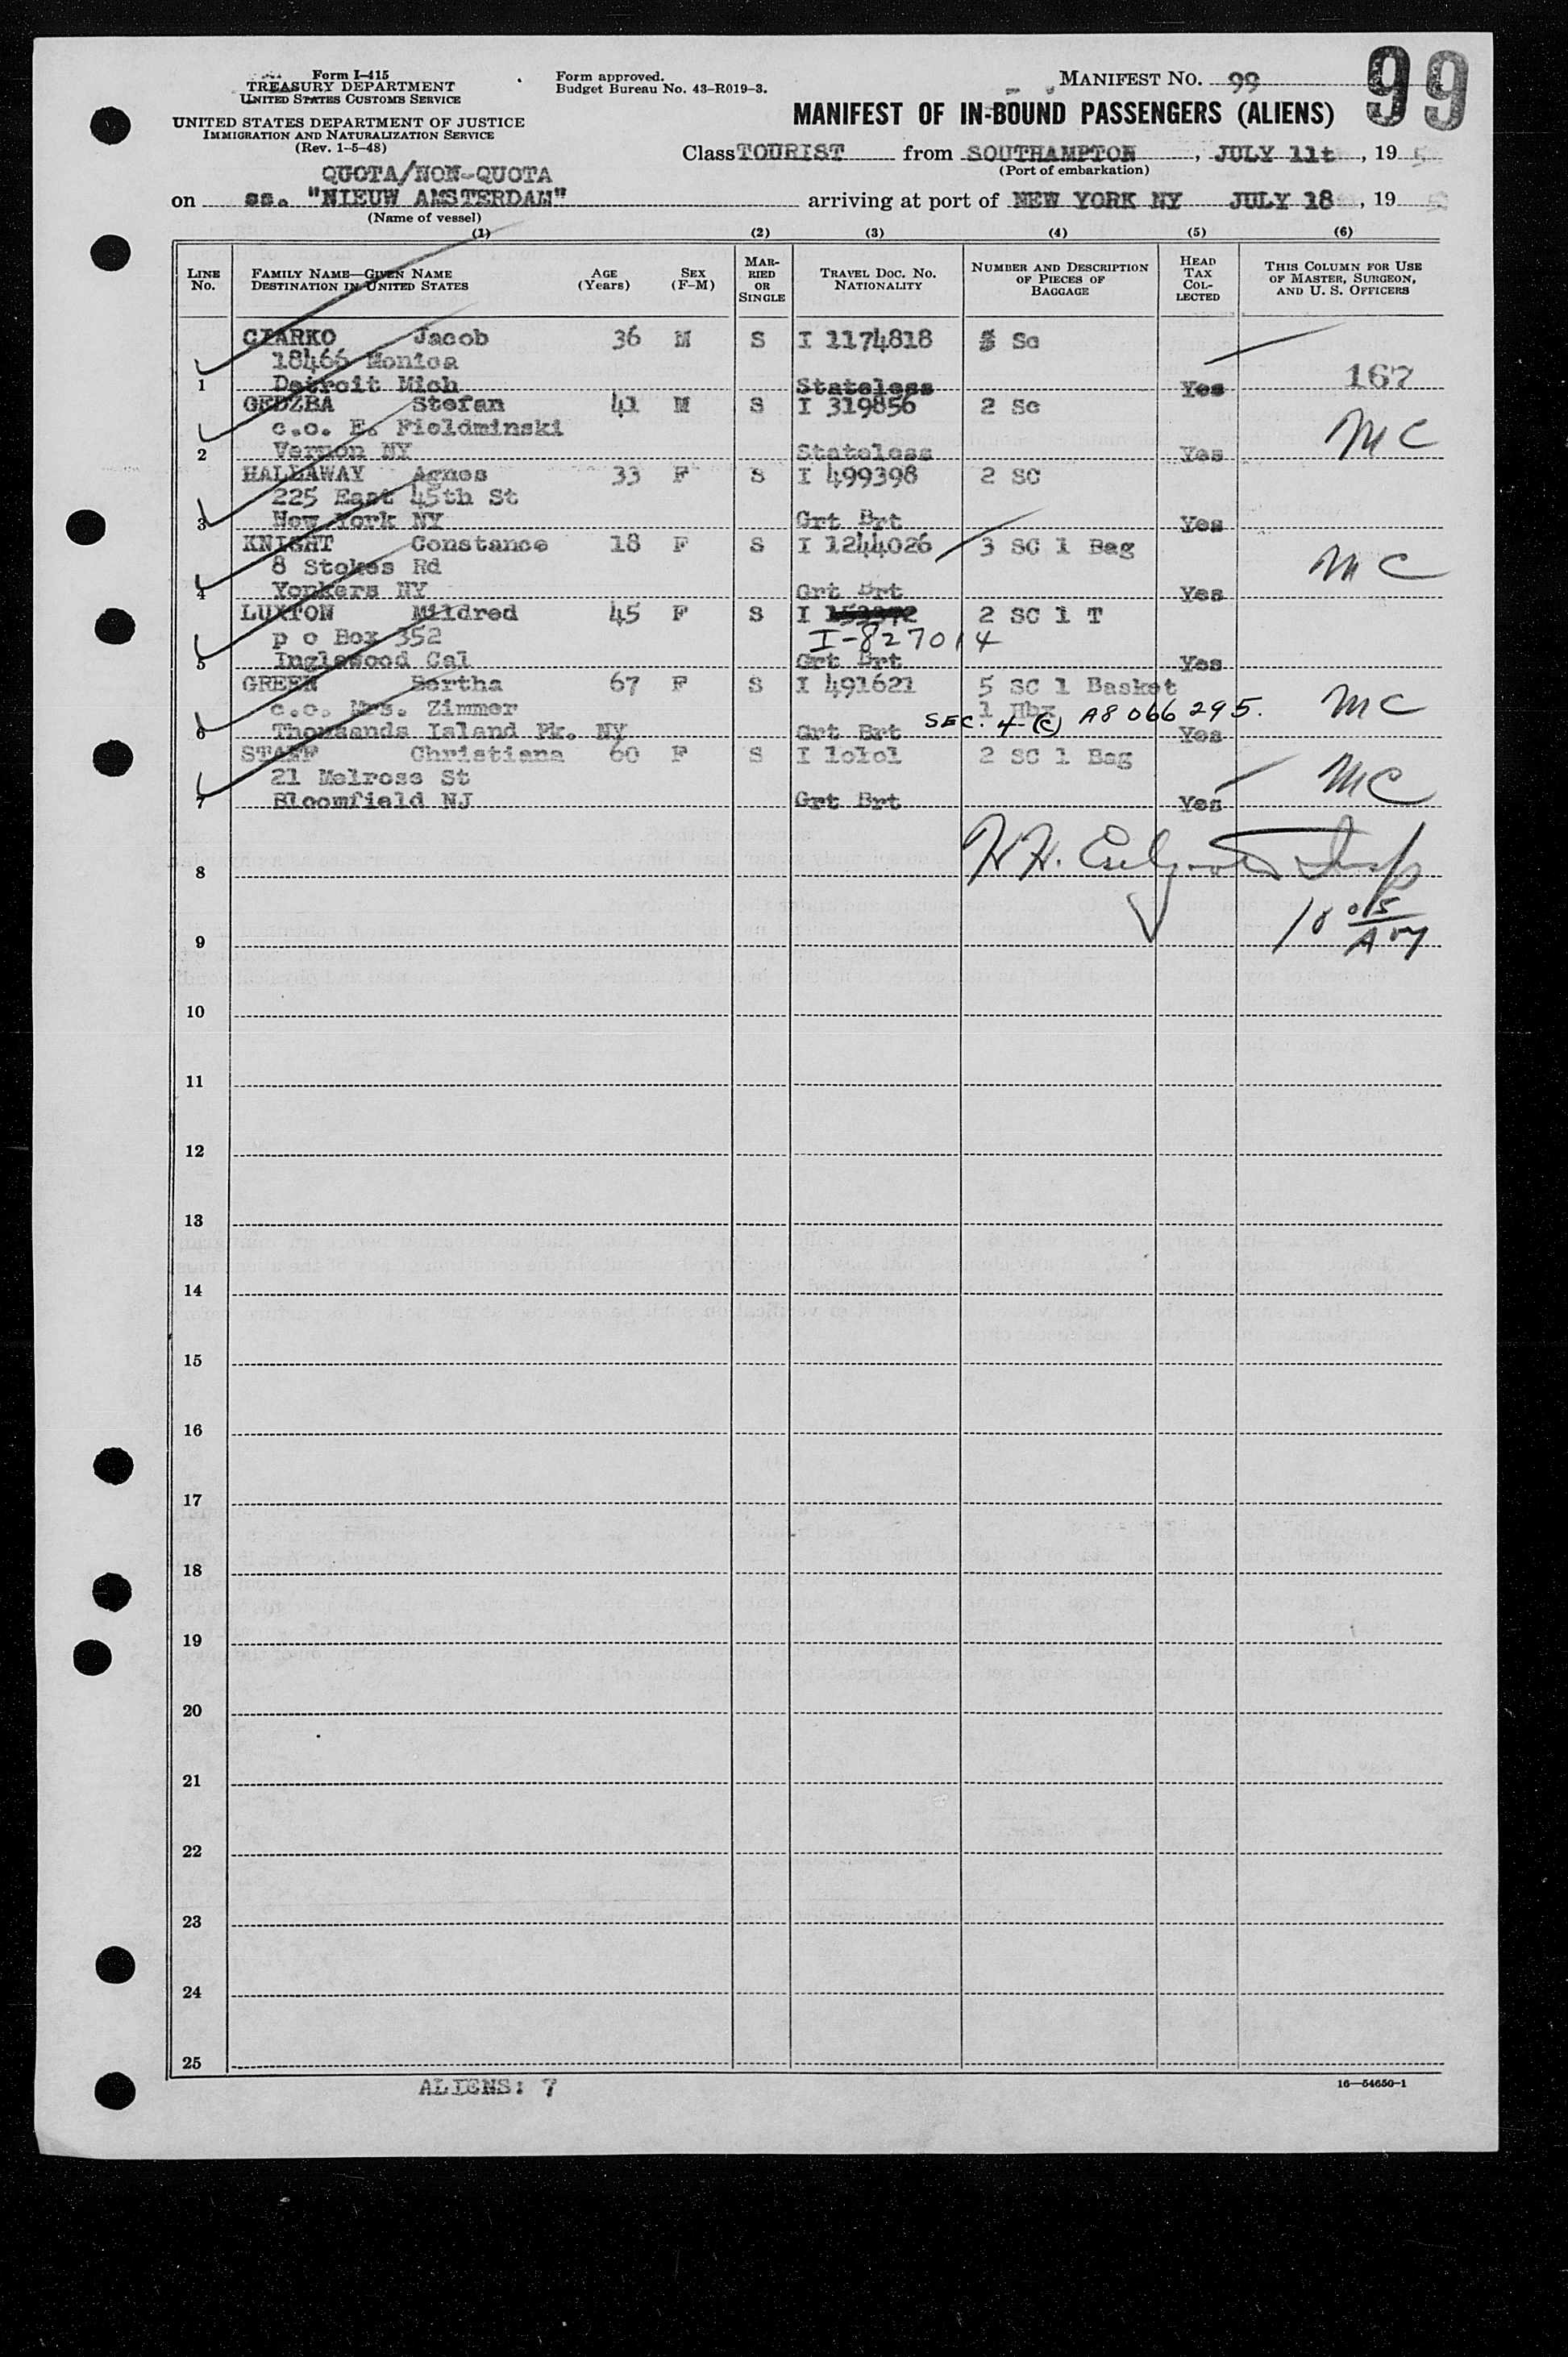 Form I-415
TREASURY DEPARTMENT
UNITED STATES CUSTOMS SERVICE
UNITED STATES DEPARTMENT OF JUSTICE
IMMIGRATION AND NATURALIZATION SERVICE
(Rev. 1-5-48)
Form approved.
Budget Bureau No. 43-R019-3.
MANIFEST NO. 99
99
MANIFEST OF IN-BOUND PASSENGERS (ALIENS)
Class TOURIST from SOUTHAMPTON, JULY 11t, 195
(Port of embarkation)
QUOTA/NON-QUOTA
on ss. "NIEUW AMSTERDAM" arriving at port of NEW YORK NY JULY 18, 19
(Name of vessel)
(1) (2) (3) (4) (5) (6)
LINE No. FAMILY NAME—GIVEN NAME DESTINATION IN UNITED STATES AGE (Years) SEX (F-M) MARRIED OR SINGLE TRAVEL DOC. NO. NATIONALITY NUMBER AND DESCRIPTION OF PIECES OF BAGGAGE HEAD TAX COLLECTED THIS COLUMN FOR USE OF MASTER, SURGEON, AND U. S. OFFICERS
CIARKO Jacob 36 M S I 1174818 5 Sc
18466 Monica
1 Detroit Mich Stateless Yes 167
GEDZBA Stefan 41 M S I 319856 2 Sc
c.o. E. Fieldminski MC
2 Vernon NY Stateless Yes
HALLAWAY Agnes 33 F S I 499398 2 SC
225 East 45th St
3 New York NY Grt Brt Yes
KNIGHT Constance 18 F S I 1244026 3 SC 1 Bag
8 Stokes Rd MC
4 Yonkers NY Grt Brt Yes
LUXTON Mildred 45 F S I 2 SC 1 T
p o Box 352 I-827014
5 Inglewood Cal Grt Brt Yes
GREEN Bertha 67 F S I 491621 5 SC 1 Basket
c.o. Mrs. Zimmer 1 Hbx MC
SEC. 4 (C) A8 066 295.
6 Thousands Island Pk. NY Grt Brt Yes
STAFF Christiana 60 F S I 1o1o1 2 SC 1 Bag
21 Melrose St MC
7 Bloomfield NJ Grt Brt Yes
8
9
10
11
12
13
14
15
16
17
18
19
20
21
22
23
24
25
ALIENS: 7
16—54650-1